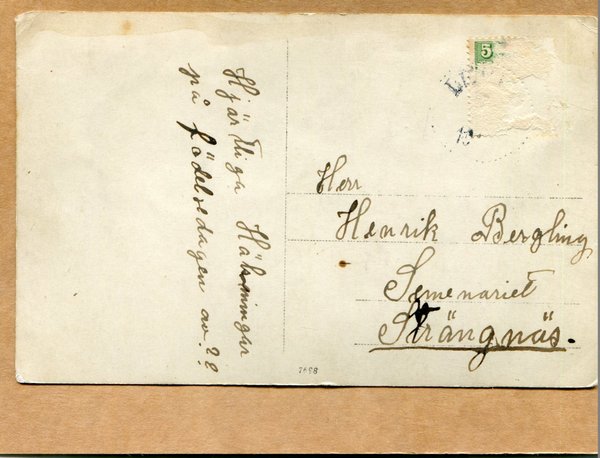 Hjärtliga Hälsningar
på födelsedagen av ??
5
Herr
Henrik Bergling
Semenariet
Strängnäs.